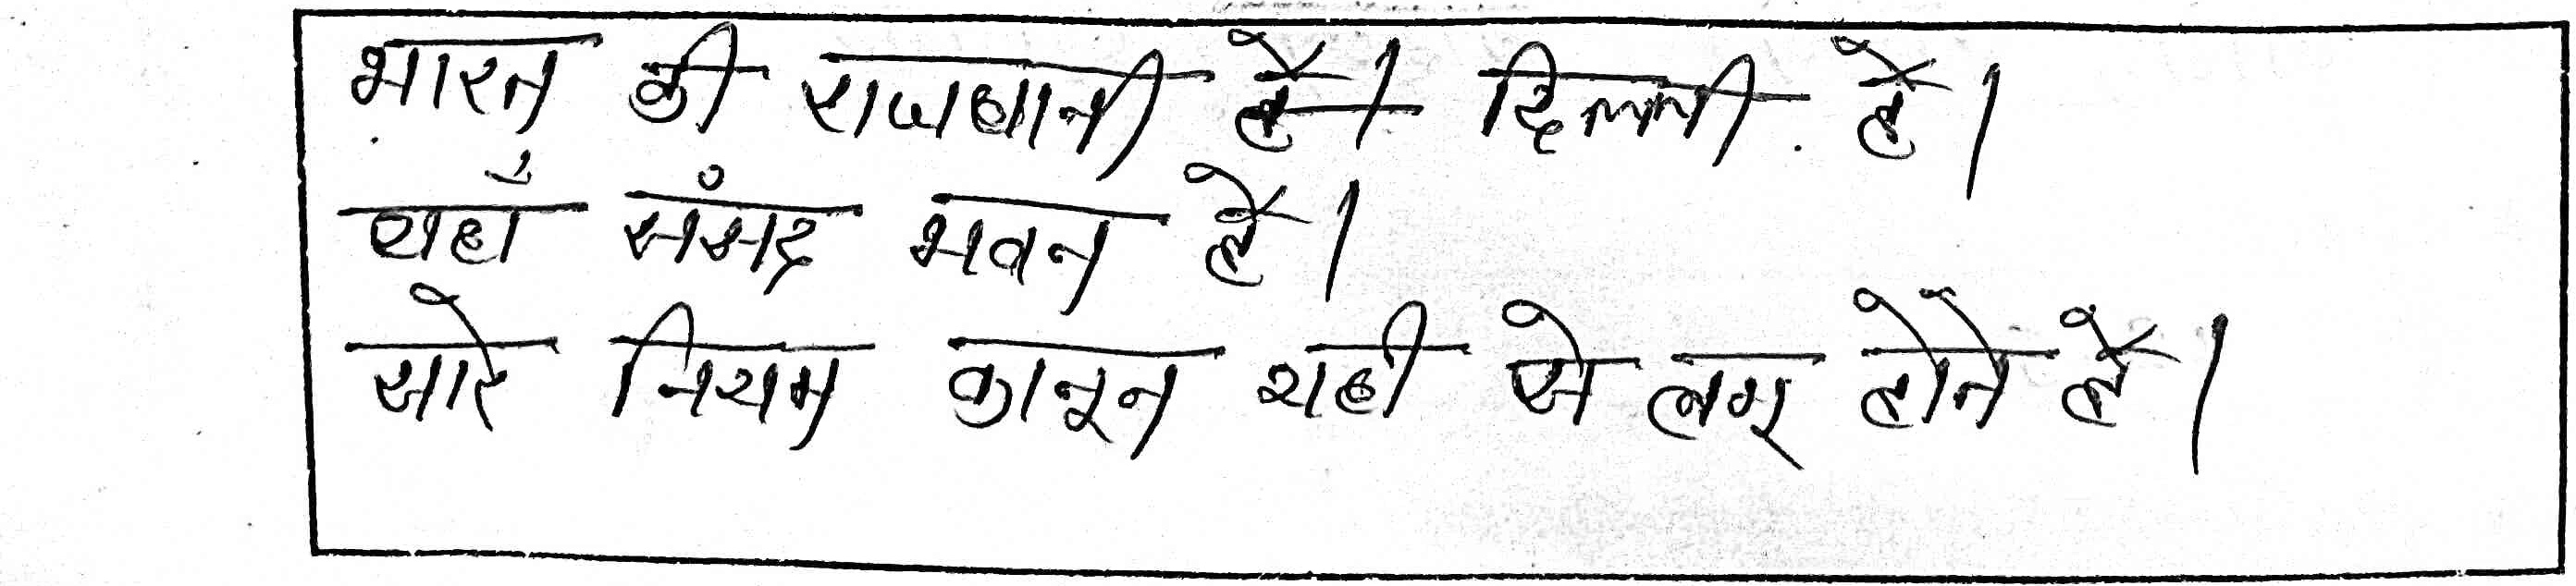 भारत की राजधानी है। दिल्ली है।
यहाँ संसद भवन है।
सारे नियम कानून यही से लागू होते है।